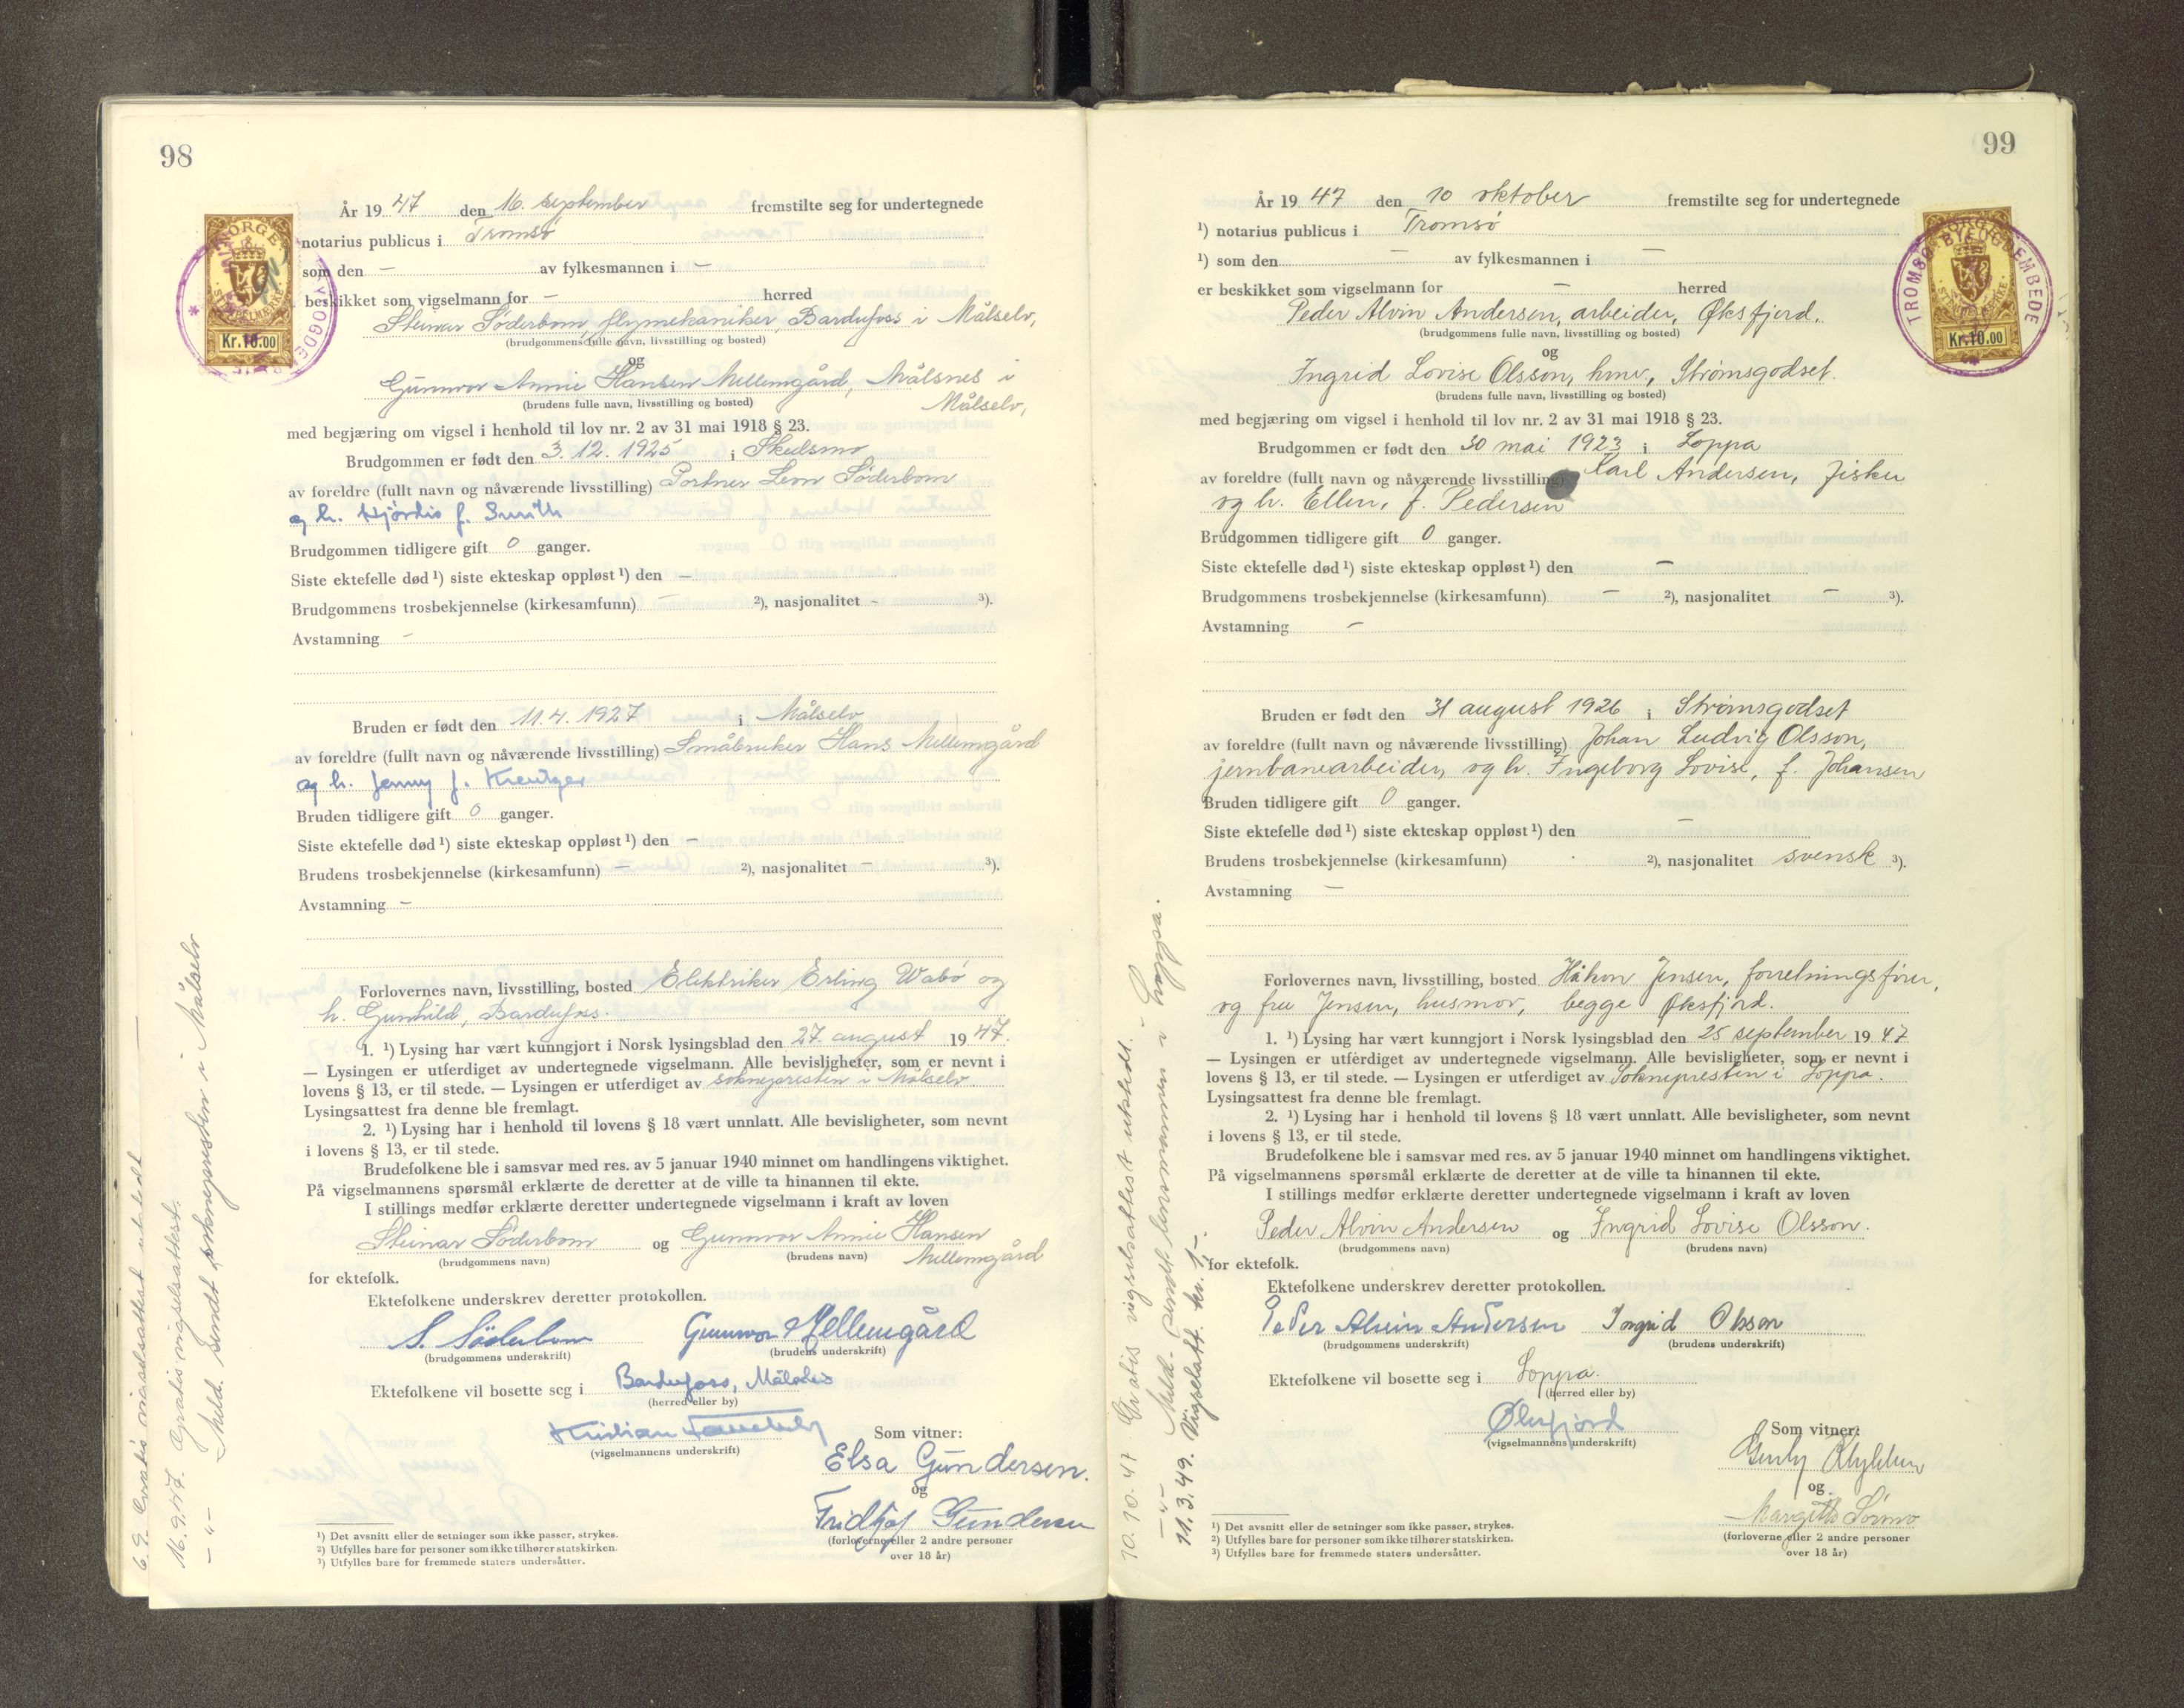 98
År 19 47 den 16. september fremstilte seg for undertegnede
notarius publicus i Tromsø
som den – av fylkesmannen i –
beskikket som vigselmann for – herred
Steinar Söderbom, flymekaniker, Bardufoss i Målselv,
(brudgommens fulle navn, livsstilling og bosted)
og
Gunnvor Annie Hansen Mellemgård, Målsnes i
Målselv,
(brudens fulle navn, livsstilling og bosted)
med begjæring om vigsel i henhold til lov nr. 2 av 31 mai 1918 § 23.
Brudgommen er født den 3. 12. 1925 i Skulsmo
av foreldre (fullt navn og nåværende livsstilling) Portner Leon Söderbom
og h. Hjördis f. Smith
Brudgommen tidligere gift 0 ganger.
Siste ektefelle død ¹) siste ekteskap oppløst ¹) den –
Brudgommens trosbekjennelse (kirkesamfunn) – ²), nasjonalitet – ³).
Avstamning –
Bruden er født den 11.4. 1927 i Målselv
av foreldre (fullt navn og nåværende livsstilling) Småbruker Hans Mellemgård
og h. Jenny f. Kreutzer
Bruden tidligere gift 0 ganger.
Siste ektefelle død ¹) siste ekteskap oppløst ¹) den –
Brudens trosbekjennelse (kirkesamfunn) – ²), nasjonalitet – ³).
Avstamning –
Forlovernes navn, livsstilling, bosted Elektriker Erling Wabø og
h. Gunhild, Bardufoss.
1. ¹) Lysing har vært kunngjort i Norsk lysingsblad den 27. august 19 47.
— Lysingen er utferdiget av undertegnede vigselmann. Alle bevisligheter, som er nevnt i
lovens § 13, er til stede. — Lysingen er utferdiget av soknepresten i Målselv.
Lysingsattest fra denne ble fremlagt.
2. ¹) Lysing har i henhold til lovens § 18 vært unnlatt. Alle bevisligheter, som nevnt
i lovens § 13, er til stede.
Brudefolkene ble i samsvar med res. av 5 januar 1940 minnet om handlingens viktighet.
På vigselmannens spørsmål erklærte de deretter at de ville ta hinannen til ekte.
I stillings medfør erklærte deretter undertegnede vigselmann i kraft av loven
Steinar Söderbom og Gunnvor Annie Hansen
(brudgommens navn) (brudens navn) Mellemgård
for ektefolk.
Ektefolkene underskrev deretter protokollen.
S. Söderbom Gunnvor Mellemgård
(brudgommens underskrift) (brudens underskrift)
Ektefolkene vil bosette seg i Bardufoss, Målselv
(herred eller by)
Kristian
(vigselmannens underskrift)
Som vitner:
Elsa Gundersen.
og
Fridtjof Gundersen
(forloverne eller 2 andre personer
over 18 år)
¹) Det avsnitt eller de setninger som ikke passer, strykes.
²) Utfylles bare for personer som ikke tilhører statskirken.
³) Utfylles bare for fremmede staters undersåtter.
16.9.47. Gratis vigselsattest.
– " – Meld. sendt soknepresten i Målselv
NORGE
STEMPELMERKE
Kr. 10.00
99
År 19 47 den 10 oktober fremstilte seg for undertegnede
¹) notarius publicus i Tromsø
¹) som den – av fylkesmannen i –
er beskikket som vigselmann for – herred
Peder Alvin Andersen, arbeider, Øksfjord.
(brudgommens fulle navn, livsstilling og bosted)
og
Ingrid Lovise Olsson, hmv, Strømsgodset.
(brudens fulle navn, livsstilling og bosted)
med begjæring om vigsel i henhold til lov nr. 2 av 31 mai 1918 § 23.
Brudgommen er født den 30 mai 1923 i Loppa
av foreldre (fullt navn og nåværende livsstilling) Karl Andersen, fisker
og h. Ellen, f. Pedersen
Brudgommen tidligere gift 0 ganger.
Siste ektefelle død ¹) siste ekteskap oppløst ¹) den –
Brudgommens trosbekjennelse (kirkesamfunn) – ²), nasjonalitet – ³).
Avstamning –
Bruden er født den 31 august 1926 i Strømsgodset
av foreldre (fullt navn og nåværende livsstilling) Johan Ludvig Olsson,
jernbanearbeider, og h. Ingeborg Lovise, f. Johansen
Bruden tidligere gift 0 ganger.
Siste ektefelle død ¹) siste ekteskap oppløst ¹) den –
Brudens trosbekjennelse (kirkesamfunn) ²), nasjonalitet svensk ³).
Avstamning –
Forlovernes navn, livsstilling, bosted Håkon Jensen, forretningsfører,
og fru Jensen, husmor, begge Øksfjord.
1. ¹) Lysing har vært kunngjort i Norsk lysingsblad den 25 september 19 47
— Lysingen er utferdiget av undertegnede vigselmann. Alle bevisligheter, som er nevnt i
lovens § 13, er til stede. — Lysingen er utferdiget av Soknepresten i Loppa.
Lysingsattest fra denne ble fremlagt.
2. ¹) Lysing har i henhold til lovens § 18 vært unnlatt. Alle bevisligheter, som nevnt
i lovens § 13, er til stede.
Brudefolkene ble i samsvar med res. av 5 januar 1940 minnet om handlingens viktighet.
På vigselmannens spørsmål erklærte de deretter at de ville ta hinannen til ekte.
I stillings medfør erklærte deretter undertegnede vigselmann i kraft av loven
Peder Alvin Andersen og Ingrid Lovise Olsson.
(brudgommens navn) (brudens navn)
for ektefolk.
Ektefolkene underskrev deretter protokollen.
Peder Alvin Andersen Ingrid Olsson
(brudgommens underskrift) (brudens underskrift)
Ektefolkene vil bosette seg i Loppa.
(herred eller by)
Øksfjord
(vigselmannens underskrift)
Som vitner:
og
Margith Sørmo
(forloverne eller 2 andre personer
over 18 år)
¹) Det avsnitt eller de setninger som ikke passer, strykes.
²) Utfylles bare for personer som ikke tilhører statskirken.
³) Utfylles bare for fremmede staters undersåtter.
10.10.47 Gratis vigselsattest utstedt.
– " – Meld. sendt lensmannen i Loppa.
11.3.49. Vigselatt. kr. 1-.
NORGE
STEMPELMERKE
Kr. 10.00
TROMSØ BYFOGDEMBEDE